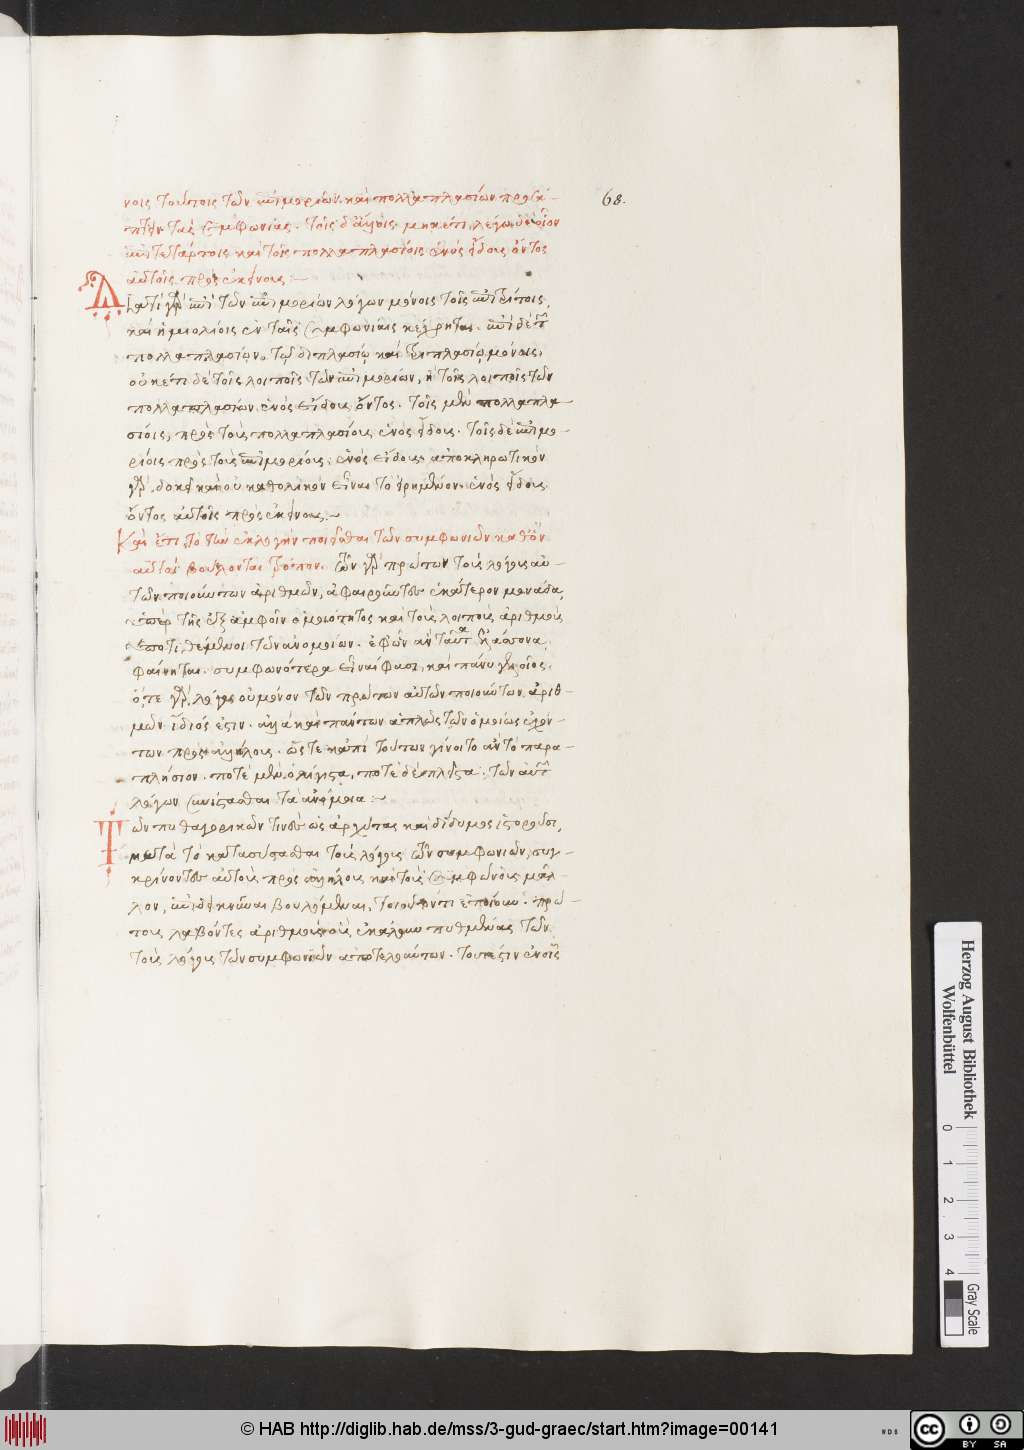 68.
νοις τούτοις τῶν ἐπιμορίων καὶ πολλαπλασίων προσά-
πτειν τὰς συμφωνίας. τοῖς δ' ἄλλοις μηκέτι. λέγω δὲ οἷον
ἐπιτετάρτοις καὶ τοῖς πολλαπλασίοις ἑνὸς εἴδους ὄντος
αὐτοῖς πρὸς ἐκείνους :~
Διατί γὰρ ἐπὶ τῶν ἐπιμορίων λόγων μόνοις τοῖς ἐπιτρίτοις,
καὶ ἡμιολίοις ἐν ταῖς συμφωνίαις κέχρηται. ἐπὶ δὲ τῶν
πολλαπλασίων, τῷ διπλασίῳ καὶ τριπλασίῳ μόνοις,
οὐκέτι δὲ τοῖς λοιποῖς τῶν ἐπιμορίων, ἢ τοῖς λοιποῖς τῶν
πολλαπλασίων ἑνὸς εἴδους ὄντος. τοῖς μὲν πολλαπλα-
σίοις, πρὸς τοὺς πολλαπλασίους ἑνὸς εἴδους. τοῖς δὲ ἐπιμο-
ρίοις πρὸς τοὺς ἐπιμορίους, ἑνὸς εἴδους. ἀποκληρωτικὸν
γὰρ δοκεῖ καὶ οὐ καθολικὸν εἶναι τὸ εἰρημένον. ἑνὸς εἴδους
ὄντος αὐτοῖς πρὸς ἐκείνους :~
Καὶ ἔτι τὸ τὴν ἐκλογὴν ποιεῖσθαι τῶν συμφωνιῶν καθ' ὃν
αὐτοὶ βούλονται τρόπον. τῶν γὰρ πρώτων τοὺς λόγους αὐ-
τῶν ποιούντων ἀριθμῶν, ἀφαιροῦντες ἑκατέρου μονάδα,
ὑπὲρ τῆς ἐξ ἀμφοῖν ὁμοιότητος καὶ τοὺς λοιποὺς ἀριθμοὺς
ὑποτιθέμενοι τῶν ἀνομοίων. ἐφ' ὧν ἂν ταῦτα ἐλάσσονα
φαίνηται. συμφωνότερα εἶναί φασι, καὶ πάνυ γελοίως.
ὅ, τε γὰρ λόγος οὐ μόνον τῶν πρώτων αὐτῶν ποιούντων ἀριθ-
μῶν ἴδιός ἐστιν. ἀλλὰ καὶ πάντων ἁπλῶς τῶν ὁμοίως ἐχόν-
των πρὸς ἀλλήλους. ὥστε κἀπὶ τούτων γίνοιτο ἂν τὸ παρα-
πλήσιον. ποτὲ μὲν ὀλίγιστα, ποτὲ δὲ πλεῖστα. τῶν αὐτῶν
λόγων συνίστασθαι τὰ ἀνόμοια :~
Τῶν πυθαγορικῶν τινὲς ὡς ἀρχύτας καὶ δίδυμος ἱστοροῦσι,
μετὰ τὸ καταστήσασθαι τοὺς λόγους τῶν συμφωνιῶν, συγ-
κρίνοντες αὐτοὺς πρὸς ἀλλήλους καὶ τοὺς συμφώνους μᾶλ-
λον, ἐπιδεικνύναι βουλόμενοι, τοιοῦτόν τι ἐποίουν. πρώ-
τους λαβόντες ἀριθμοὺς οὓς ἐκάλουν πυθμένας τῶν
τοὺς λόγους τῶν συμφωνιῶν ἀποτελούντων. τουτέστιν ἐν οἷς
Herzog August Bibliothek
Wolfenbüttel
0 1 2 3 4 Gray Scale
© HAB http://diglib.hab.de/mss/3-gud-graec/start.htm?image=00141
WDB
cc BY SA